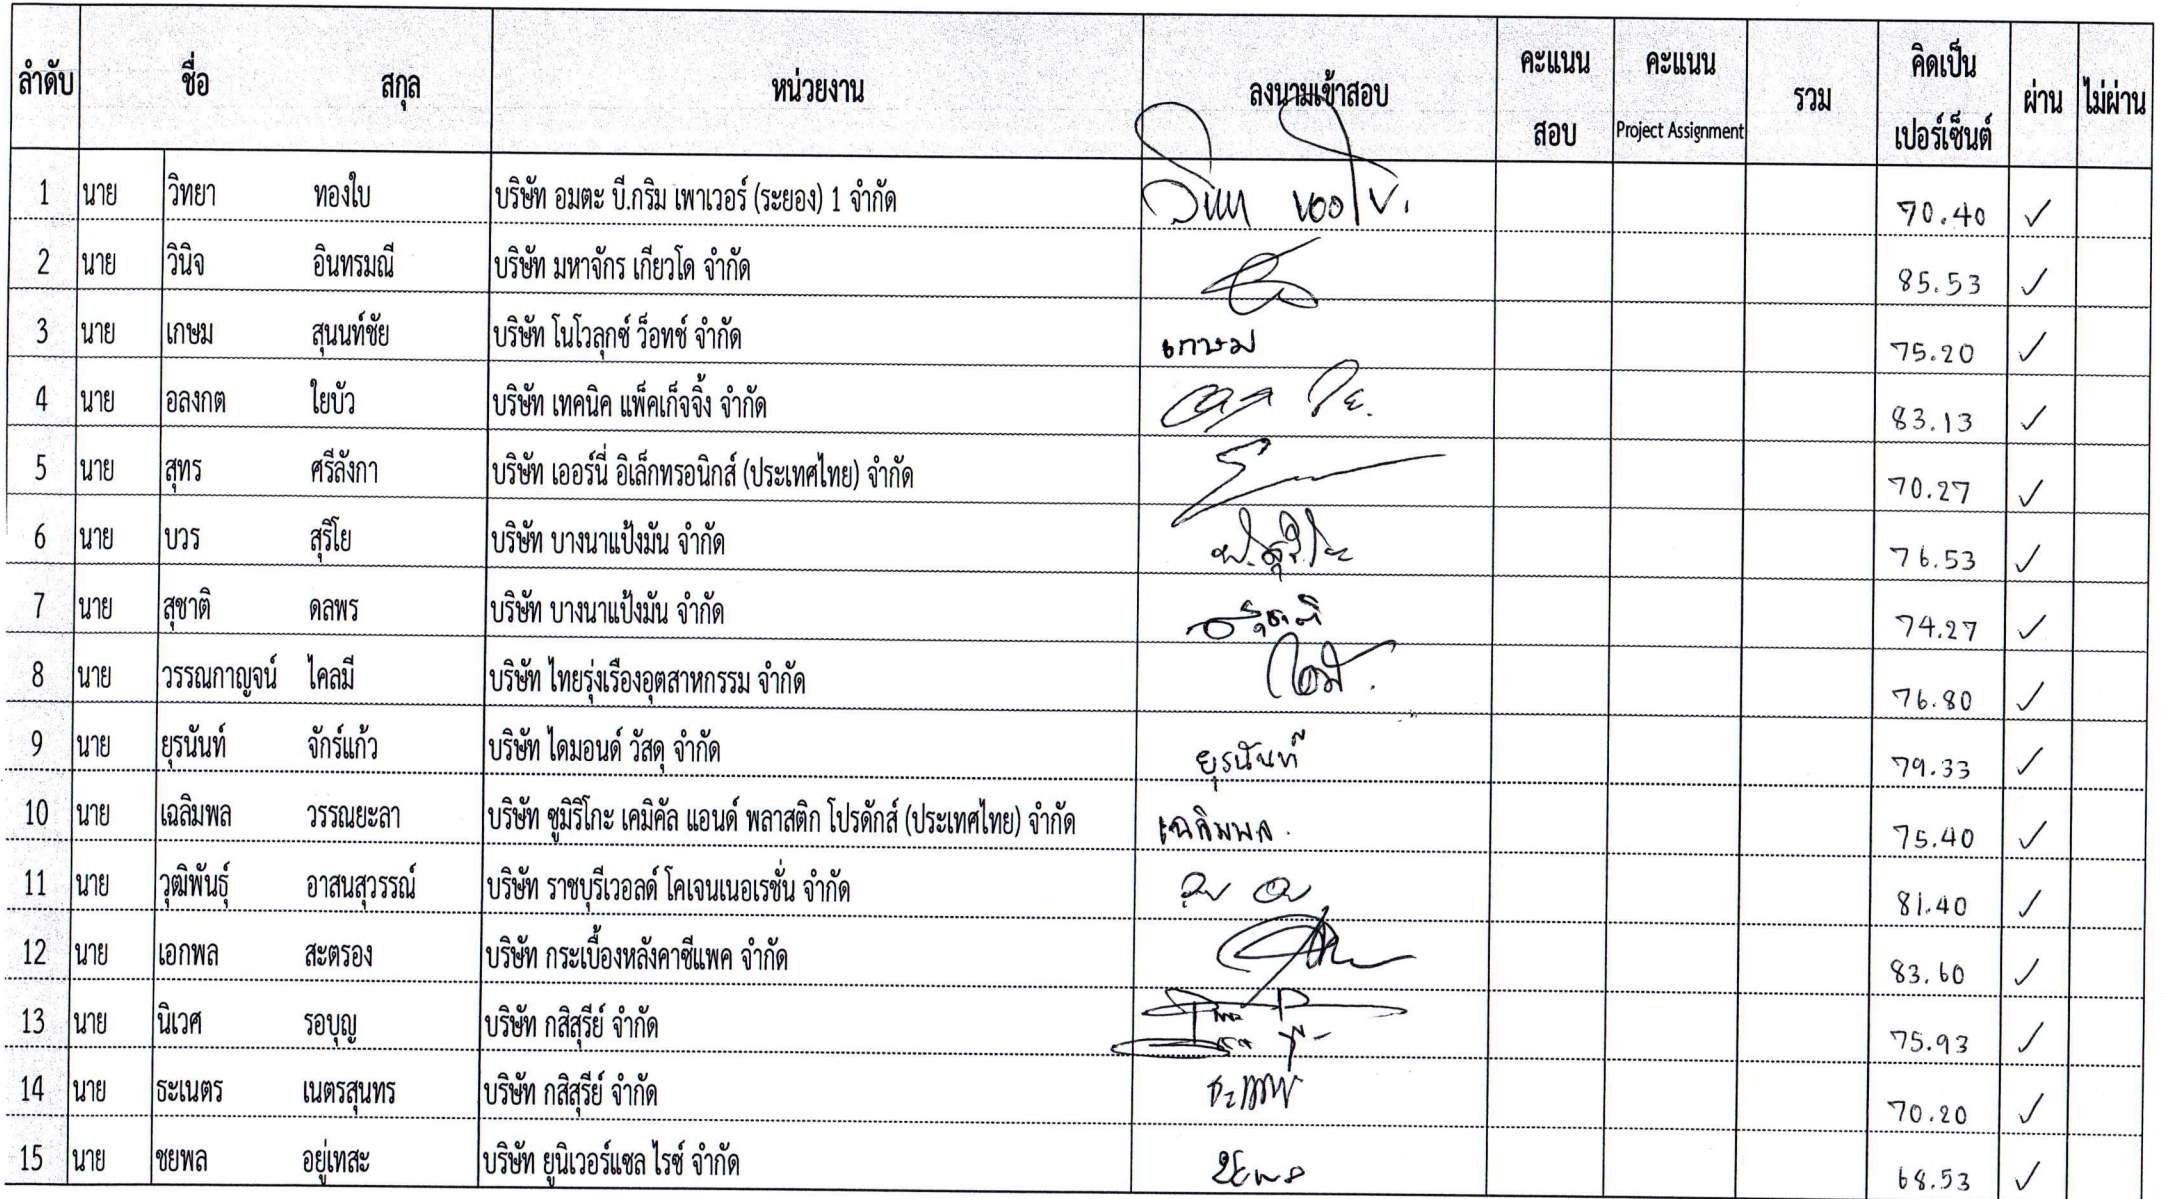 ลำดับ ชื่อ สกุล หน่วยงาน ลงนามเข้าสอบ คะแนน สอบ คะแนน Project Assignment รวม คิดเป็น เปอร์เซ็นต์ ผ่าน ไม่ผ่าน
1 นาย วิทยา ทองใบ บริษัท อมตะ บี.กริม เพาเวอร์ (ระยอง) 1 จำกัด 70.40 ✓
2 นาย วินิจ อินทรมณี บริษัท มหาจักร เกียวโด จำกัด 85.53 ✓
3 นาย เกษม สุนนท์ชัย บริษัท โนโวลุกซ์ ว็อทช์ จำกัด เกษม 75.20 ✓
4 นาย อลงกต ใยบัว บริษัท เทคนิค แพ็คเก็จจิ้ง จำกัด 83.13 ✓
5 นาย สุทร ศรีลังกา บริษัท เออร์นี่ อิเล็กทรอนิกส์ (ประเทศไทย) จำกัด 70.27 ✓
6 นาย บวร สุริโย บริษัท บางนาแป้งมัน จำกัด 76.53 ✓
7 นาย สุชาติ ดลพร บริษัท บางนาแป้งมัน จำกัด สุชาติ 74.27 ✓
8 นาย วรรณกาญจน์ ไคลมี บริษัท ไทยรุ่งเรืองอุตสาหกรรม จำกัด 76.80 ✓
9 นาย ยุรนันท์ จักร์แก้ว บริษัท ไดมอนด์ วัสดุ จำกัด ยุรนันท์ 79.33 ✓
10 นาย เฉลิมพล วรรณยะลา บริษัท ซูมิริโกะ เคมิคัล แอนด์ พลาสติก โปรดักส์ (ประเทศไทย) จำกัด เฉลิมพล. 75.40 ✓
11 นาย วุฒิพันธุ์ อาสนสุวรรณ์ บริษัท ราชบุรีเวอลด์ โคเจนเนอเรชั่น จำกัด 81.40 ✓
12 นาย เอกพล สะตรอง บริษัท กระเบื้องหลังคาซีแพค จำกัด 83.60 ✓
13 นาย นิเวศ รอบุญ บริษัท กสิสุรีย์ จำกัด 75.93 ✓
14 นาย ธะเนตร เนตรสุนทร บริษัท กสิสุรีย์ จำกัด 70.20 ✓
15 นาย ชยพล อยู่เทสะ บริษัท ยูนิเวอร์แซล ไรซ์ จำกัด 68.53 ✓